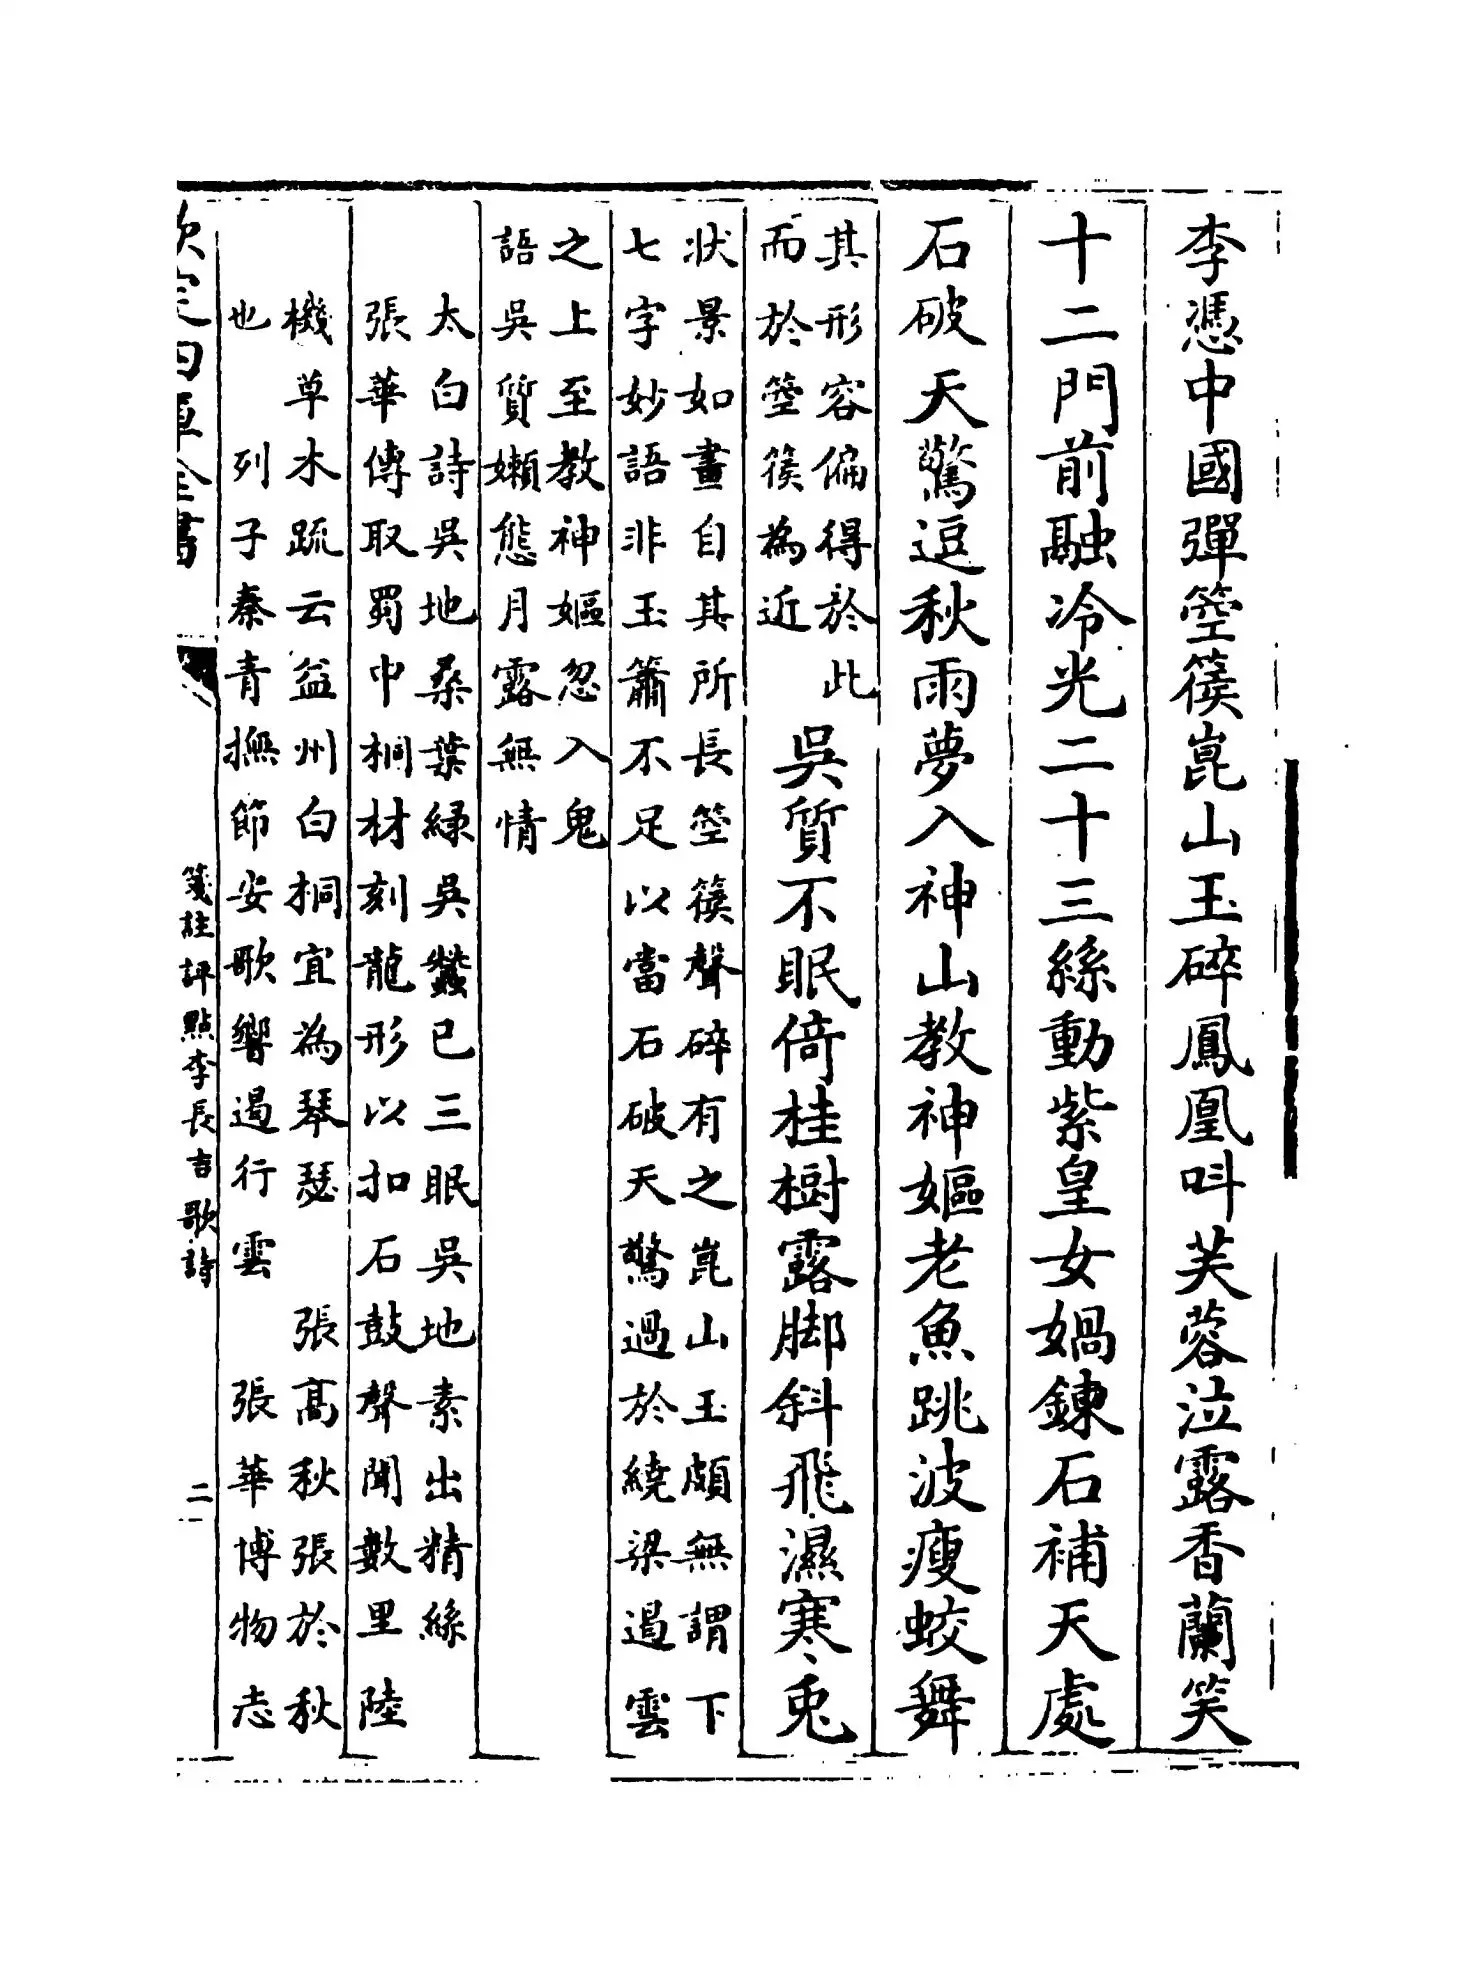 李憑中國彈箜篌崑山玉碎鳳凰叫芙蓉泣露香蘭笑
十二門前融冷光二十三絲動紫皇女媧鍊石補天處
石破天驚逗秋雨夢入神山教神嫗老魚跳波瘦蛟舞
其形容偏得於此
而於箜篌為近
吳質不眠倚桂樹露脚斜飛濕寒兎
狀景如畫自其所長箜篌聲碎有之崑山玉頗無謂下
七字妙語非玉簫不足以當石破天驚過於繞梁遏雲
之上至教神嫗忽入鬼
語吳質嬾態月露無情
太白詩吳地桑葉緑吳蠶已三眠吳地素出精絲
張華傳取蜀中桐材刻龍形以扣石鼓聲聞數里 陸
機草木疏云益州白桐宜為琴瑟 張高秋張於秋
也 列子秦青撫節安歌響遏行雲 張華博物志
欽定四庫全書
箋註評點李長吉歌詩
二